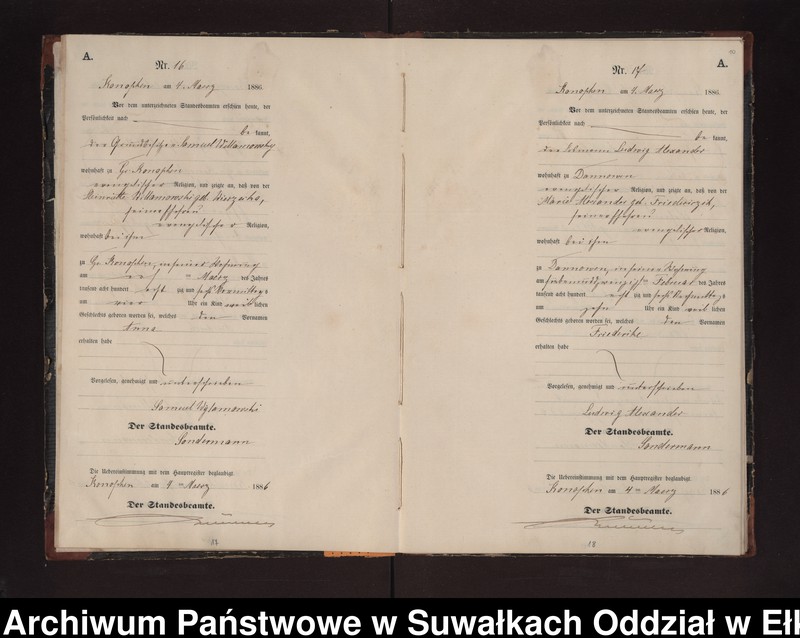 A.
Nr. 16
Konopken am 4. Maerz 1886.
Vor dem unterzeichneten Standesbeamten erschien heute, der
Persönlichkeit nach
be kannt,
der Grundbesitzer Samuel
wohnhaft zu Gr. Konopken
evangelischer Religion, und zeigte an, daß von der
geb.
seiner Ehefrau
evangelischer Religion,
wohnhaft bei ihm
zu Gr. Konopken, in seiner Wohnung
am Maerz des Jahres
tausend acht hundert acht zig und sechs Vormittags
um vier Uhr ein Kind weib lichen
Geschlechts geboren worden sei, welches den Vornamen
Anna
erhalten habe
Vorgelesen, genehmigt und unterschrieben
Samuel
Der Standesbeamte.
Sondermann
Die Uebereinstimmung mit dem Hauptregister beglaubigt
Konopken am 4ten Maerz 1886
Der Standesbeamte.
17
A.
Nr. 17
Konopken am 4. Maerz 1886.
Vor dem unterzeichneten Standesbeamten erschien heute, der
Persönlichkeit nach
be kannt,
der Ludwig Alexander
wohnhaft zu Dannowen
evangelischer Religion, und zeigte an, daß von der
Marie Alexander geb.
seiner Ehefrau
evangelischer Religion,
wohnhaft bei ihm
zu Dannowen, in seiner Wohnung
am siebenundzwanzigsten Februar des Jahres
tausend acht hundert acht zig und sechs Nachmittags
um zehn Uhr ein Kind weib lichen
Geschlechts geboren worden sei, welches den Vornamen
Friederike
erhalten habe
Vorgelesen, genehmigt und unterschrieben
Ludwig Alexander
Der Standesbeamte.
Sondermann
Die Uebereinstimmung mit dem Hauptregister beglaubigt
Konopken am 4ten Maerz 1886
Der Standesbeamte.
18
Archiwum Państwowe w Suwałkach Oddział w Eł